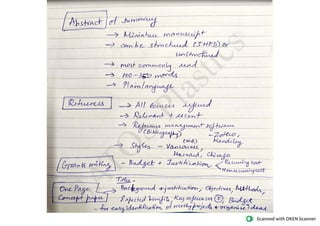 Abstract of summary
→ Miniature manuscript
→ can be structured (IMRD) or
unstructured
→ most commonly read
→ 100-250 words
→ Plain language
References → All sources refered
→ Relevant & recent
→ Reference management software
(Bibliography) - Zotero,
Mendeley
→ Styles - Vancouver,
Harvard, Chicago
Grants writing - Budget & Justification → Recurring cost
Non recurring cost
Title -
One Page Concept paper → Background & justification, objectives, Methods,
Expected benefits, Key references & Budget
- for easy identification of worthy projects & organise ideas
Scanned with OKEN Scanner